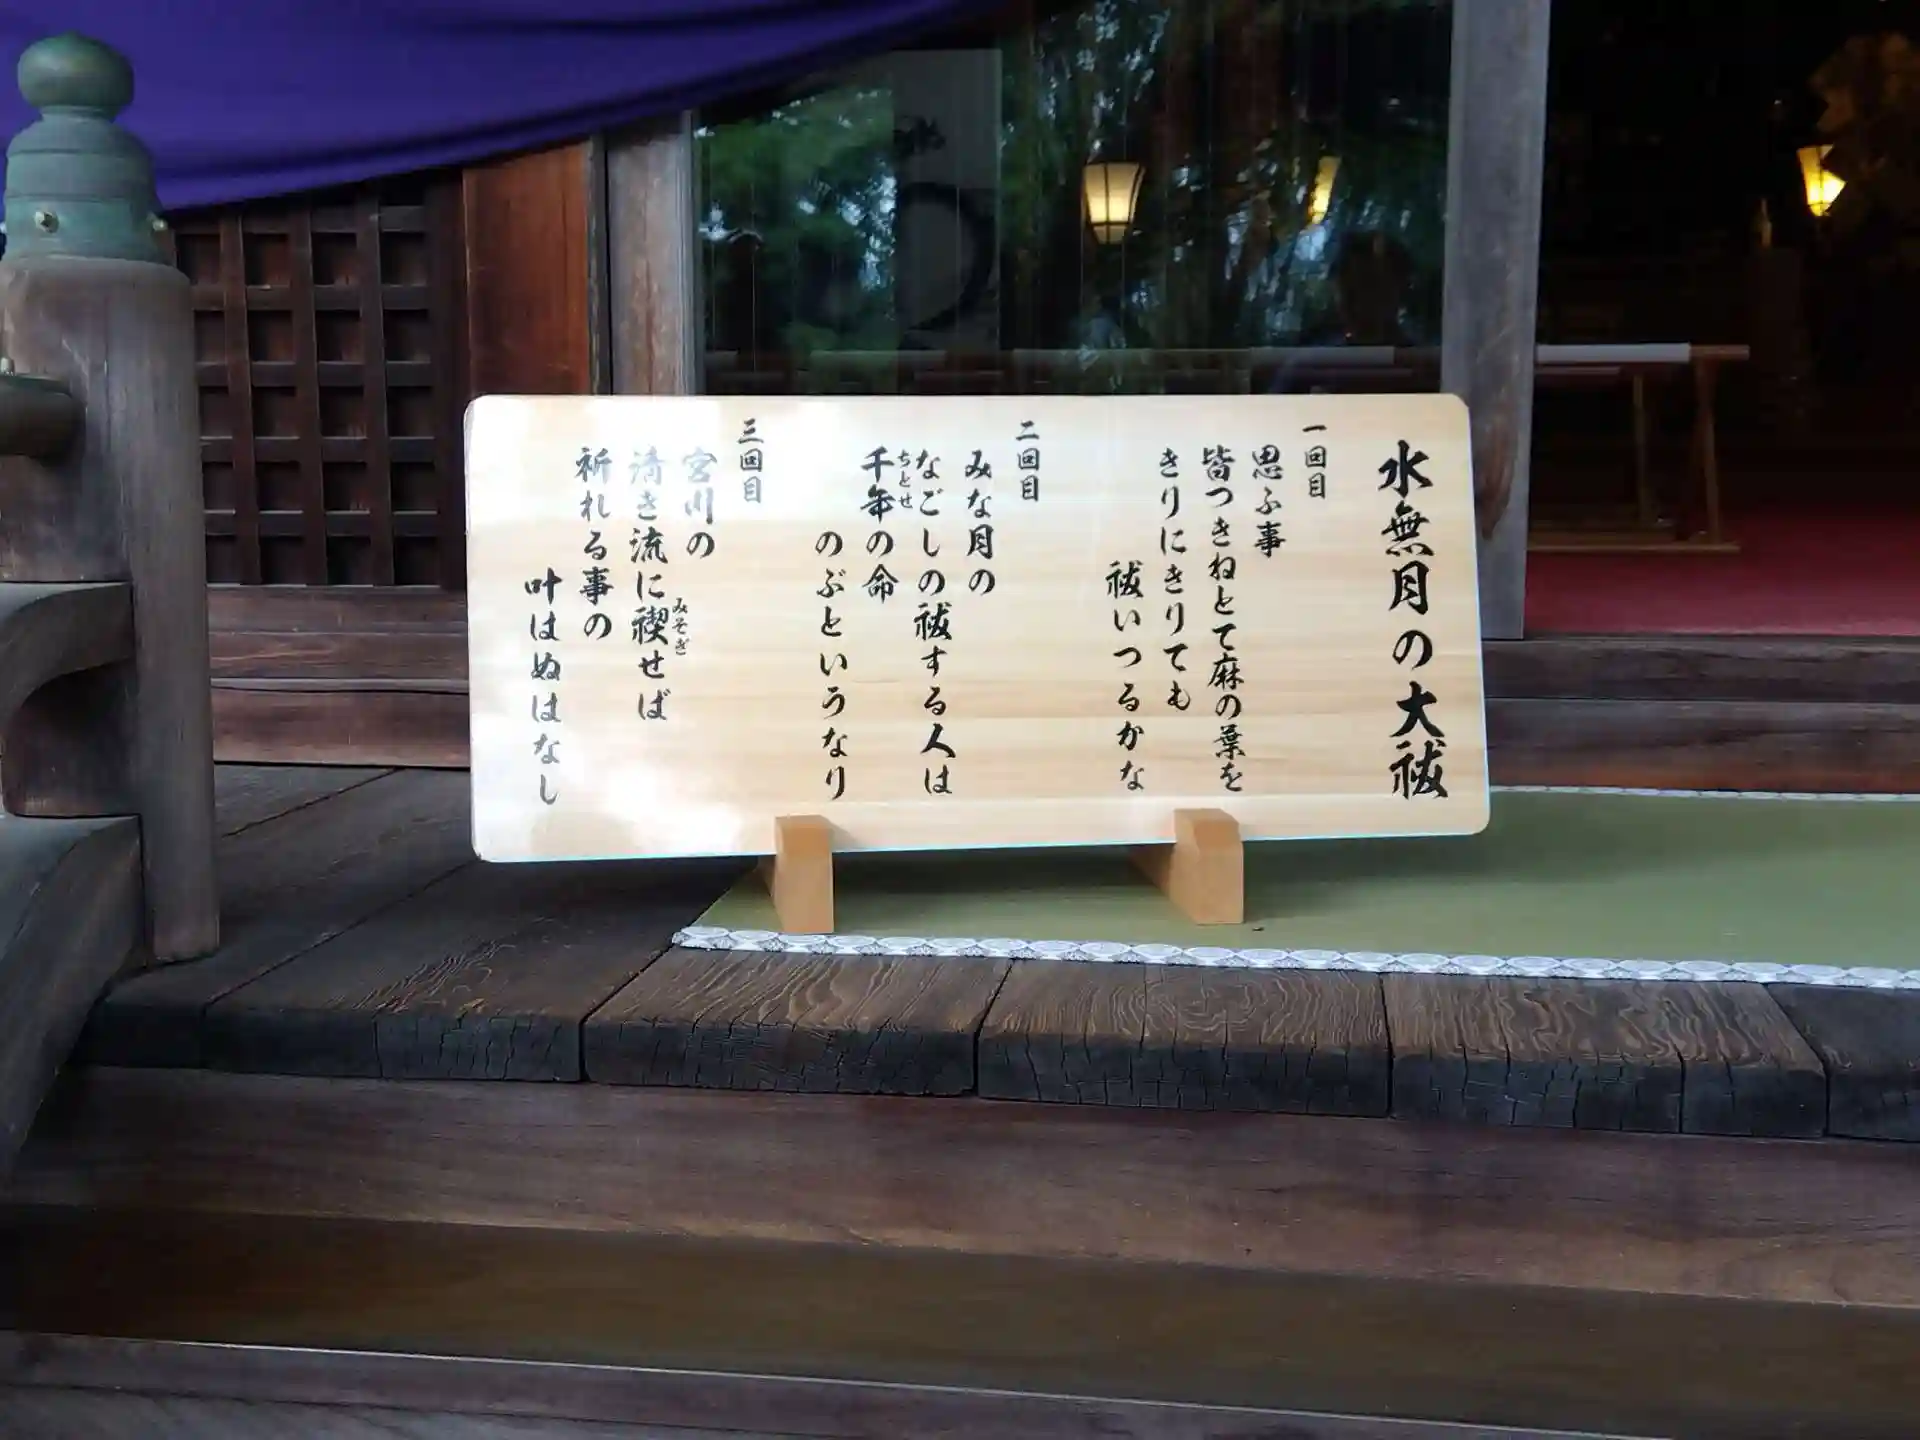 水無月の大祓
一回目
思ふ事
皆つきねとて麻の葉を
きりにきりても
祓いつるかな
二回目
みな月の
なごしの祓する人は
千年の命
ちとせ
のぶというなり
三回目
宮川の
清き流に禊せば
みそぎ
祈れる事の
叶はぬはなし